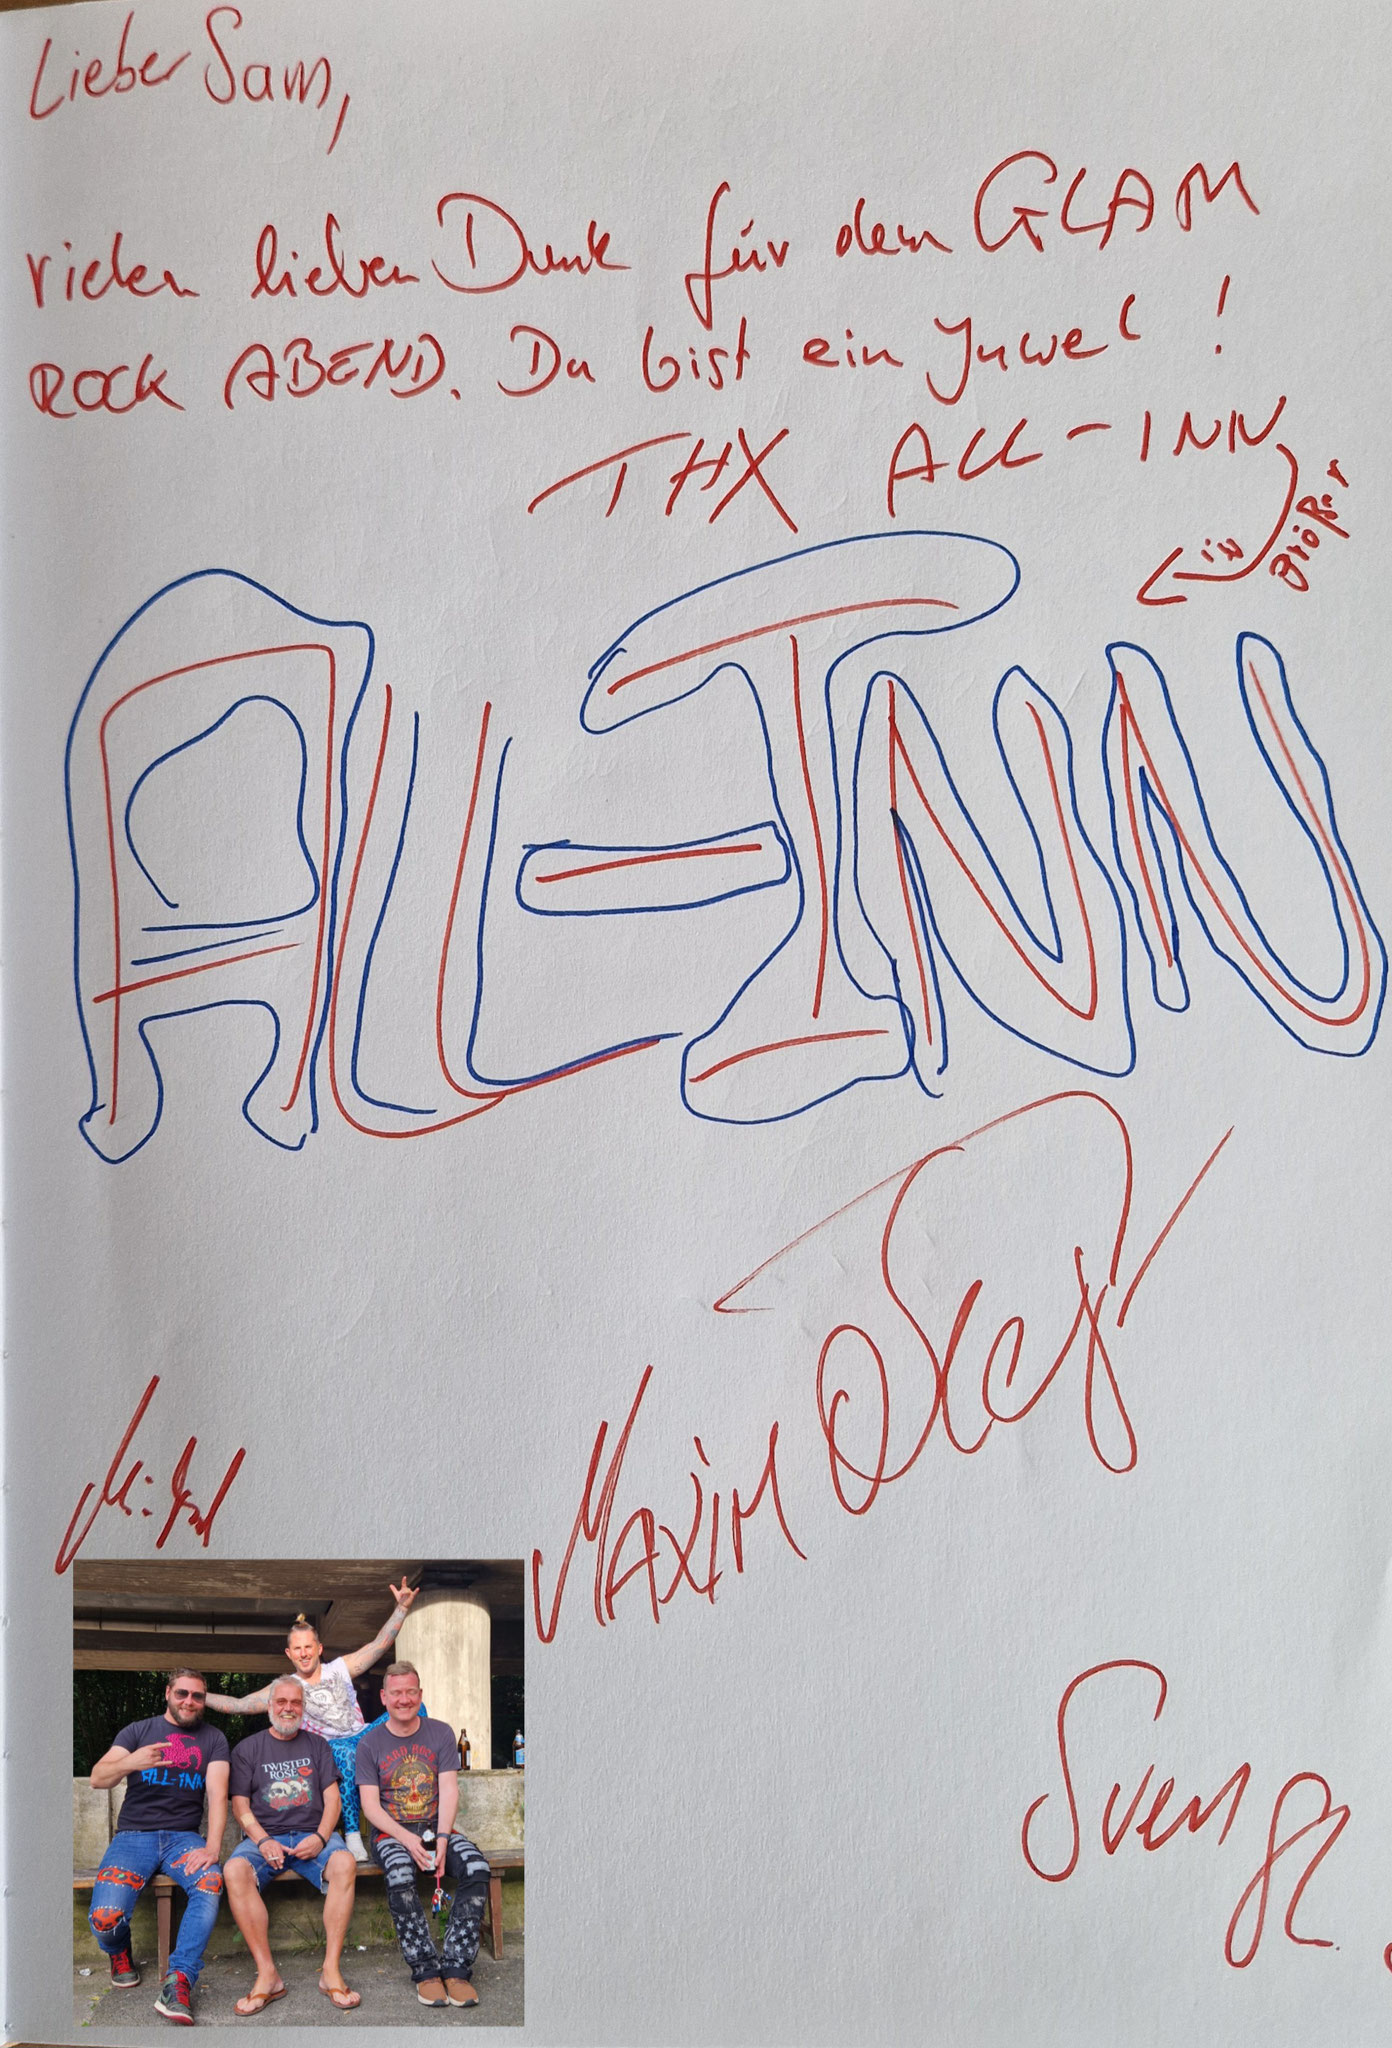 Lieber Sam,
vielen lieben Dank für den GLAM
ROCK ABEND. Du bist ein Juwel!
THX ALL-INN
in größer
ALL-INN
MAXIM
Sven
ALL-INN
TWISTED
ROSE
HARD ROCK